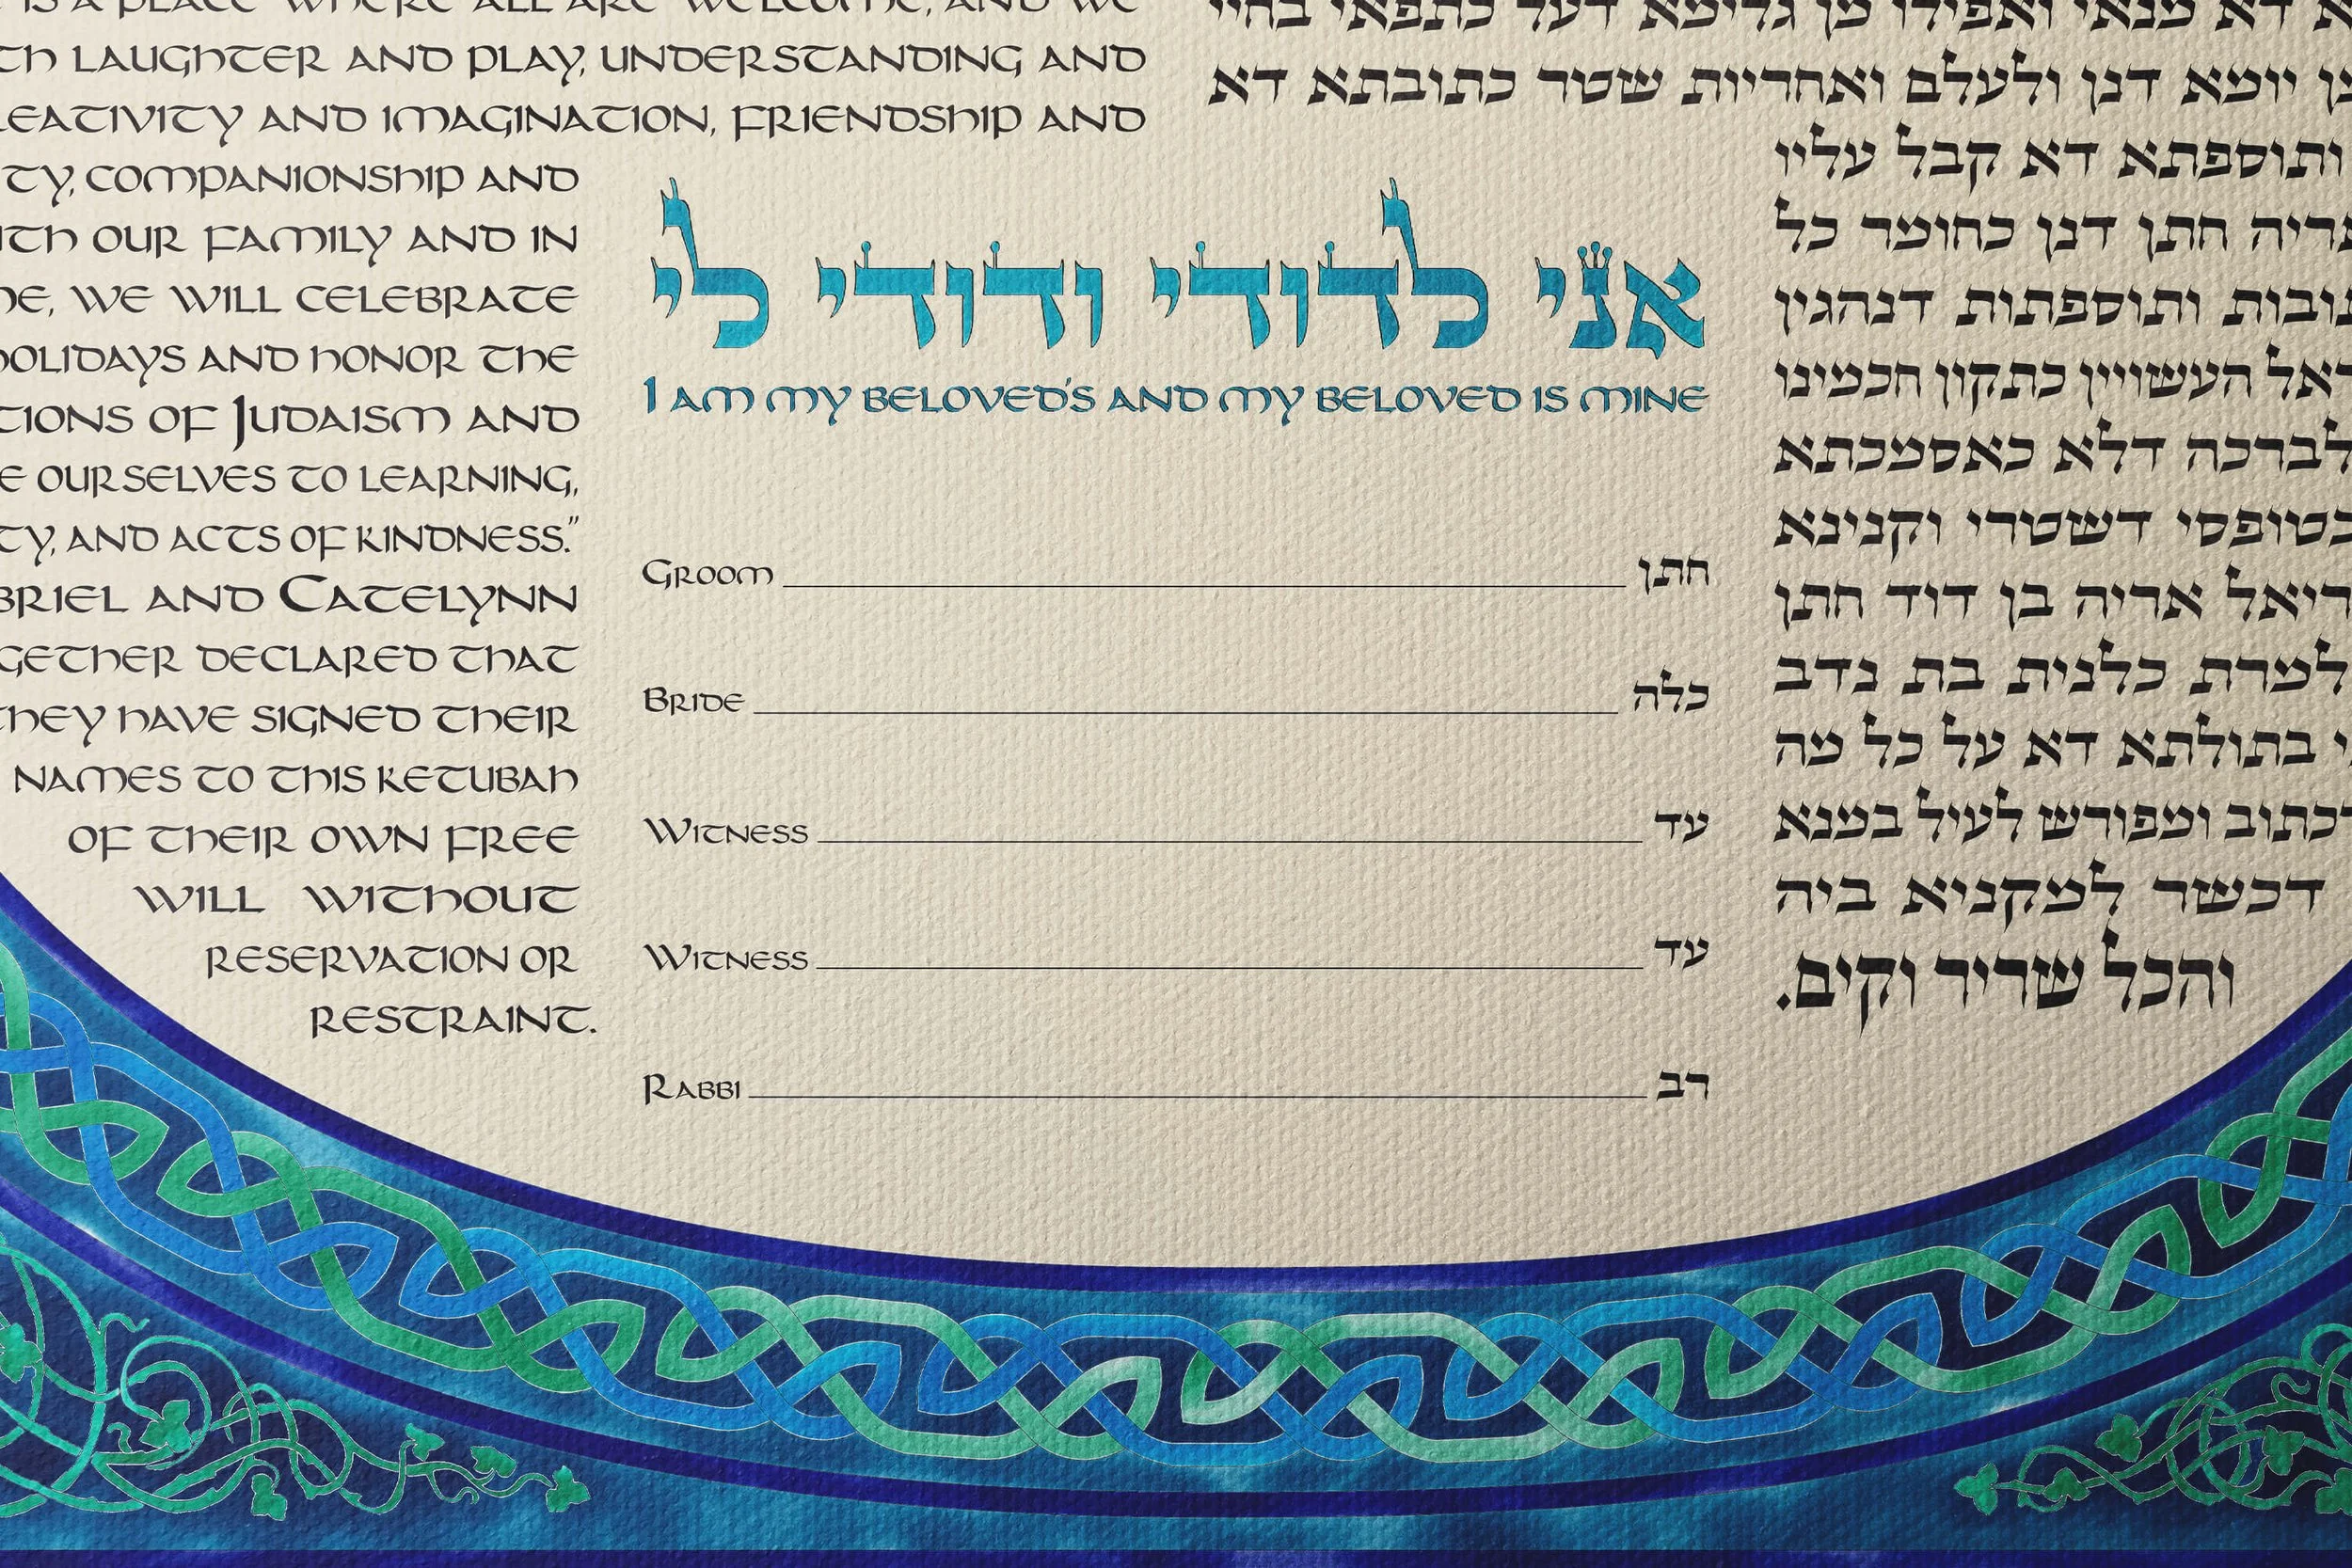 IS A PLACE WHERE ALL ARE WELCOME, AND WE
TH LAUGHTER AND PLAY, UNDERSTANDING AND
EATIVITY AND IMAGINATION, FRIENDSHIP AND
TY, COMPANIONSHIP AND
TH OUR FAMILY AND IN
E, WE WILL CELEBRATE
HOLIDAYS AND HONOR THE
TIONS OF JUDAISM AND
E OURSELVES TO LEARNING,
TY, AND ACTS OF KINDNESS."
BRIEL AND CATELYNN
GETHER DECLARED THAT
THEY HAVE SIGNED THEIR
NAMES TO THIS KETUBAH
OF THEIR OWN FREE
WILL WITHOUT
RESERVATION OR
RESTRAINT.
אני לדודי ודודי לי
I AM MY BELOVED'S AND MY BELOVED IS MINE
GROOM חתן
BRIDE כלה
WITNESS עד
WITNESS עד
RABBI רב
דא מנאי ואפילו מן גלימא דעל כתפאי בחיי
יומא דנן ולעלם ואחריות שטר כתובתא דא
ותוספתא דא קבל עליו
ריה חתן דנן כחומר כל
ובות ותוספתות דנהגין
ראל העשויין כתקון חכמינו
לברכה דלא כאסמכתא
כטופסי דשטרי וקנינא
ריאל אריה בן דוד חתן
למרת כלנית בת נדב
י בתולתא דא על כל מה
דכתוב ומפורש לעיל במנא
דכשר למקניא ביה
והכל שריר וקים.